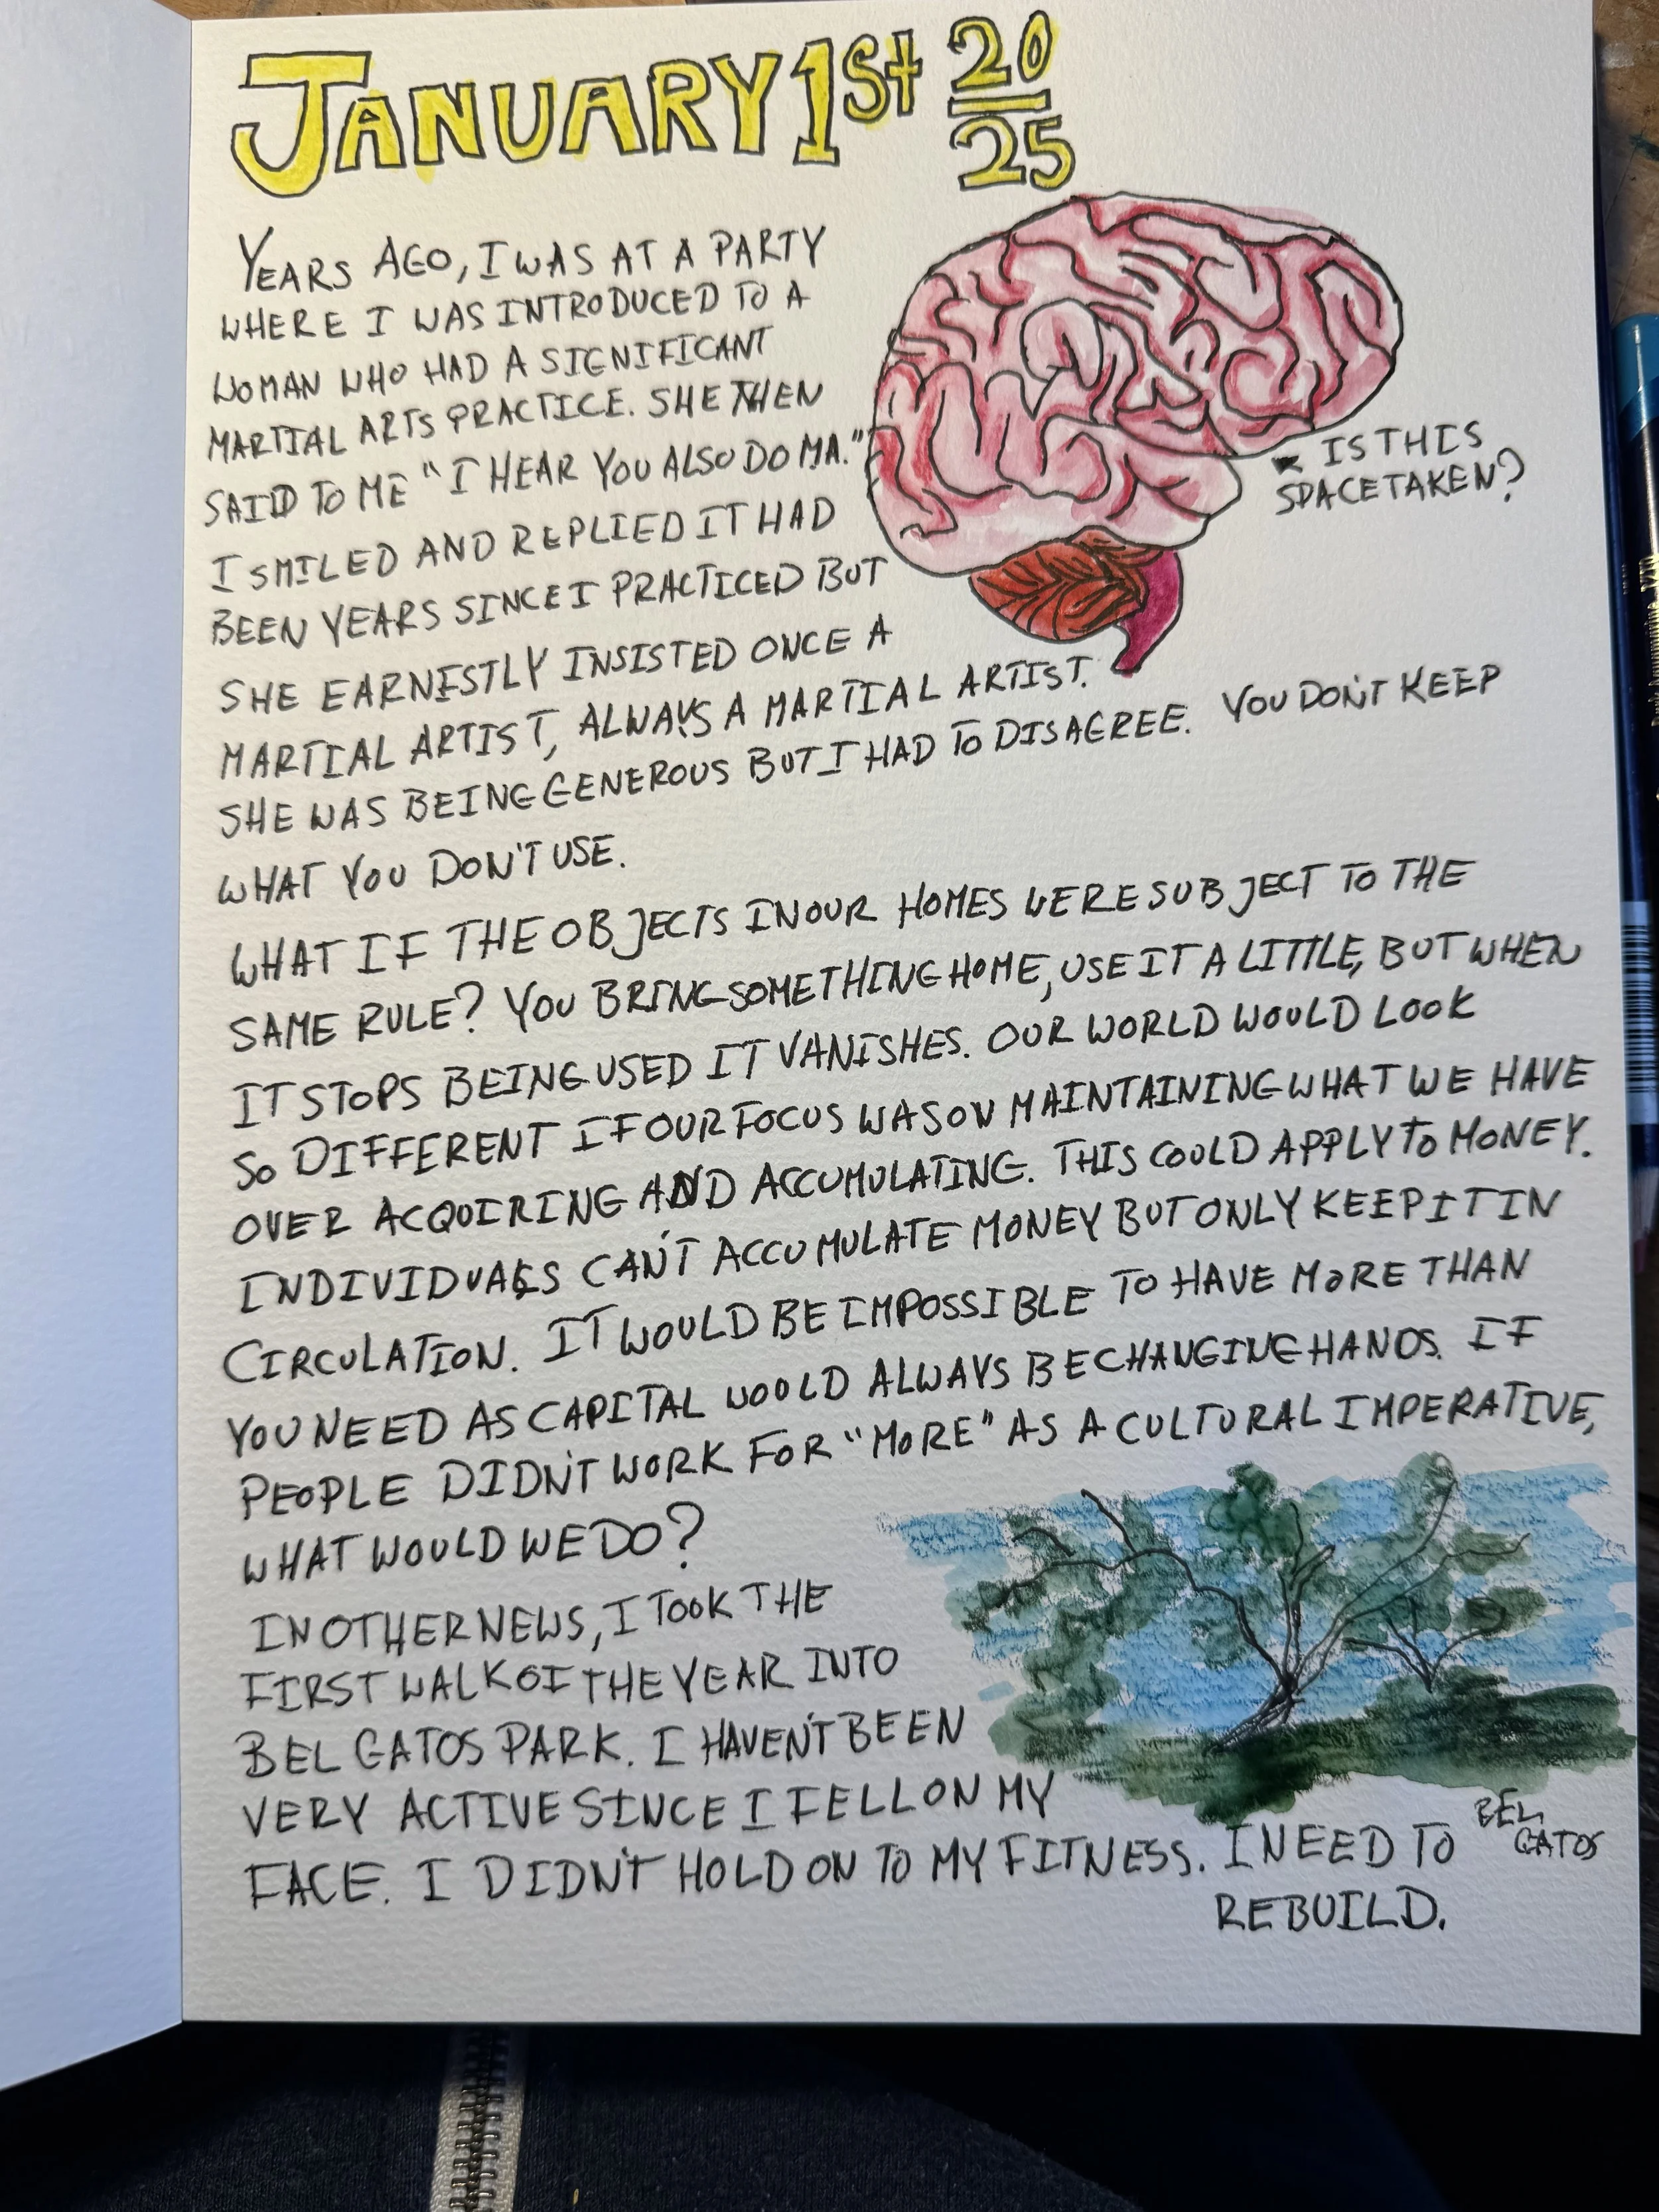 JANUARY 1St 20
25
YEARS AGO, I WAS AT A PARTY
WHERE I WAS INTRODUCED TO A
WOMAN WHO HAD A SIGNIFICANT
MARTIAL ARTS PRACTICE. SHE THEN
SAID TO ME "I HEAR YOU ALSO DO MA."
I SMILED AND REPLIED IT HAD
BEEN YEARS SINCE I PRACTICED BUT
SHE EARNESTLY INSISTED ONCE A
MARTIAL ARTIST, ALWAYS A MARTIAL ARTIST.
SHE WAS BEING GENEROUS BUT I HAD TO DISAGREE. YOU DON'T KEEP
WHAT YOU DON'T USE.
IS THIS
SPACE TAKEN?
WHAT IF THE OBJECTS IN OUR HOMES WERE SUBJECT TO THE
SAME RULE? YOU BRING SOMETHING HOME, USE IT A LITTLE, BUT WHEN
IT STOPS BEING USED IT VANISHES. OUR WORLD WOULD LOOK
SO DIFFERENT IF OUR FOCUS WAS ON MAINTAINING WHAT WE HAVE
OVER ACQUIRING AND ACCUMULATING. THIS COULD APPLY TO MONEY.
INDIVIDUALS CAN'T ACCUMULATE MONEY BUT ONLY KEEP IT IN
CIRCULATION. IT WOULD BE IMPOSSIBLE TO HAVE MORE THAN
YOU NEED AS CAPITAL WOULD ALWAYS BE CHANGING HANDS. IF
PEOPLE DIDN'T WORK FOR "MORE" AS A CULTURAL IMPERATIVE,
WHAT WOULD WE DO?
IN OTHER NEWS, I TOOK THE
FIRST WALK OF THE YEAR INTO
BEL GATOS PARK. I HAVEN'T BEEN
VERY ACTIVE SINCE I FELL ON MY
FACE. I DIDN'T HOLD ON TO MY FITNESS. I NEED TO
REBUILD.
BEL
GATOS